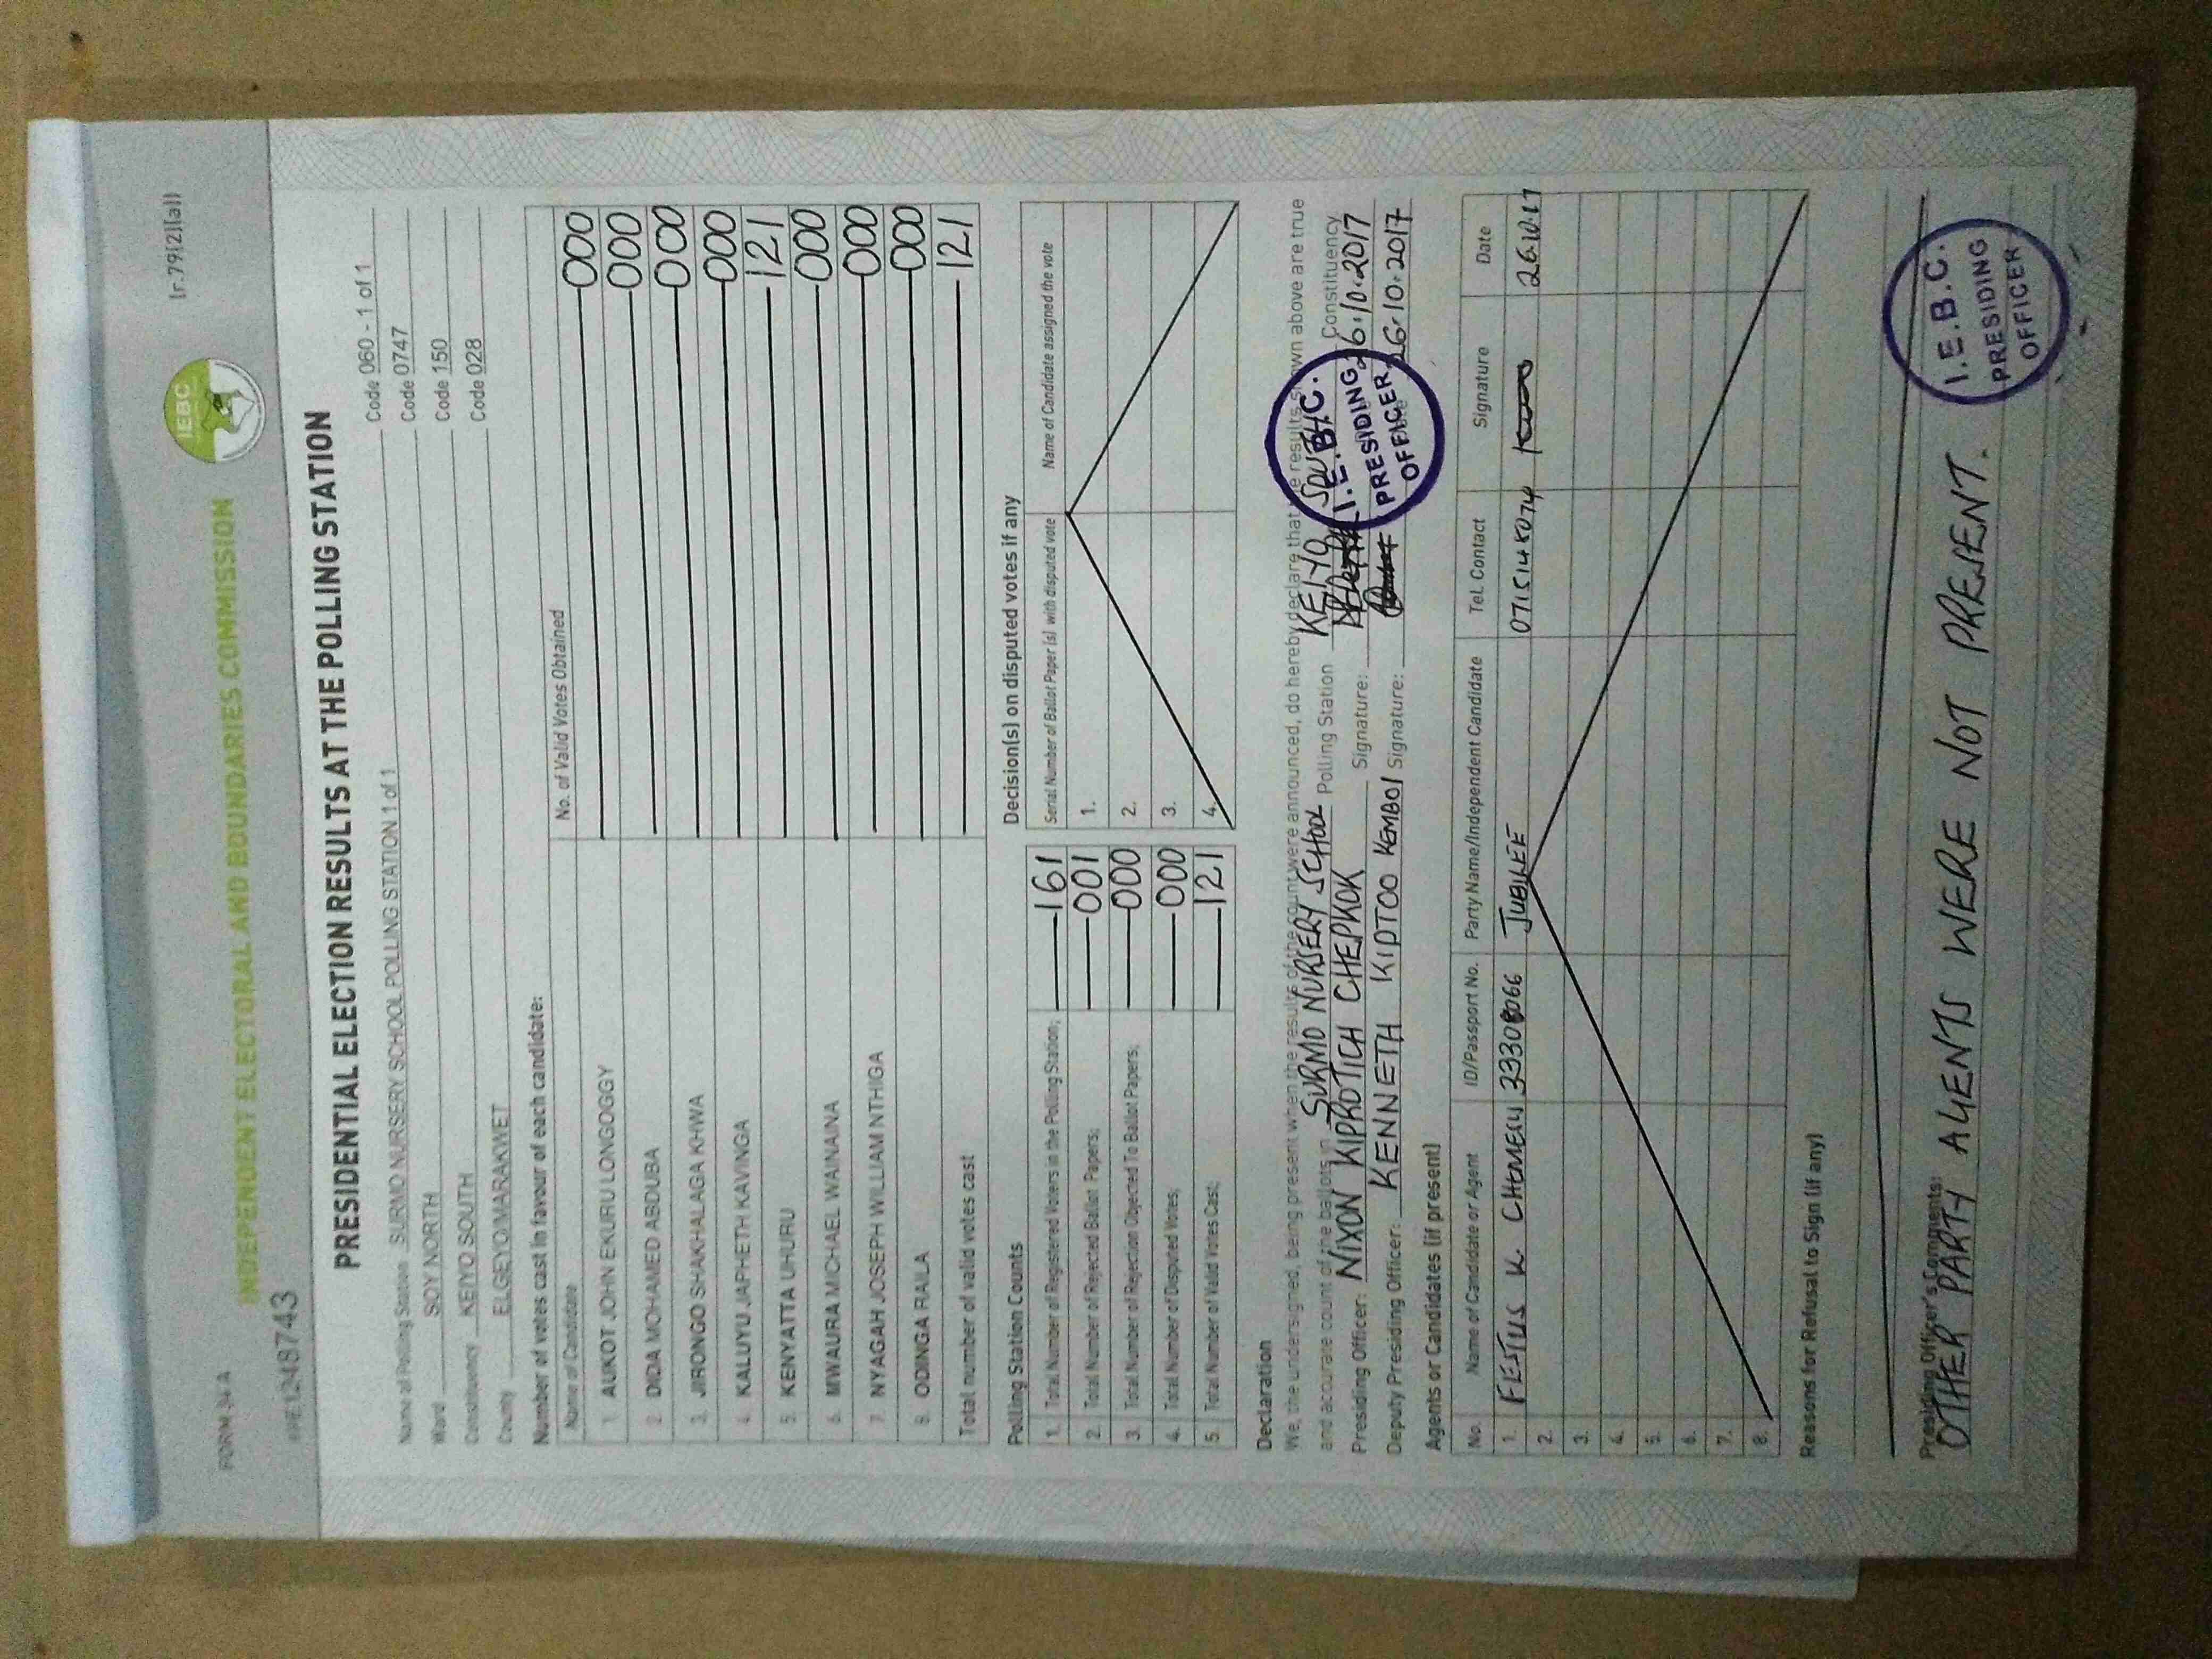 FORM 34 A
(r.79(2)(a))
IEBC
INDEPENDENT ELECTORAL AND BOUNDARIES COMMISSION
PRESIDENTIAL ELECTION RESULTS AT THE POLLING STATION
Name of Polling Station SURMO NURSERY SCHOOL POLLING STATION 1 of 1 Code 060 - 1 of 1
Ward SOY NORTH Code 0747
Constituency KEIYO SOUTH Code 150
County ELGEYO/MARAKWET Code 028
Number of votes cast in favour of each candidate:
Name of Candidate No. of Valid Votes Obtained
1. AUKOT JOHN EKURU LONGOGGY 000
2. DIDA MOHAMED ABDUBA 000
3. JIRONGO SHAKHALAGA KHWA 000
4. KALUYU JAPHETH KAVINGA 000
5. KENYATTA UHURU 121
6. MWAURA MICHAEL WAINAINA 000
7. NYAGAH JOSEPH WILLIAM NTHIGA 000
8. ODINGA RAILA 000
Total number of valid votes cast 121
Polling Station Counts
1. Total Number of Registered Voters in the Polling Station; 161
2. Total Number of Rejected Ballot Papers; 001
3. Total Number of Rejection Objected To Ballot Papers; 000
4. Total Number of Disputed Votes; 000
5. Total Number of Valid Votes Cast; 121
Decision(s) on disputed votes if any
Serial Number of Ballot Paper (s) with disputed vote Name of Candidate assigned the vote
1.
2.
3.
4.
Declaration
We, the undersigned, being present when the results of the count were announced, do hereby declare that the results shown above are true
and accurate count of the ballots in SURMO NURSERY SCHOOL Polling Station KEIYO SOUTH Constituency
Presiding Officer: NIXON KIPROTICH CHEPKOK Signature: 26.10.2017
Deputy Presiding Officer: KENNETH KIPTOO KEMBOI Signature: 26.10.2017
I.E.B.C.
PRESIDING
OFFICER
Agents or Candidates (if present)
No. Name of Candidate or Agent ID/Passport No. Party Name/Independent Candidate Tel. Contact Signature Date
1. FESTUS K. JUBILEE 26.10.17
2.
3.
4.
5.
6.
7.
8.
Reasons for Refusal to Sign (if any)
Presiding Officer's Comments:
OTHER PARTY AGENTS WERE NOT PRESENT.
I.E.B.C.
PRESIDING
OFFICER